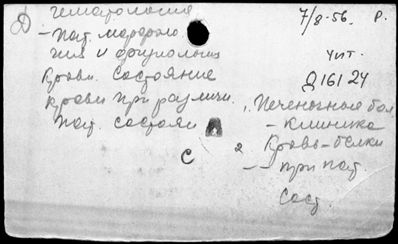 Д гематология
7/8-56. р.
- пат. морфоло
гия и физиология
чит.
крови. Состояние
Д 161 24
крови при различн.
пат. состоян
1, Печеночные бол
- клиника
2 Кровь-белки
- при пат.
сост.
С